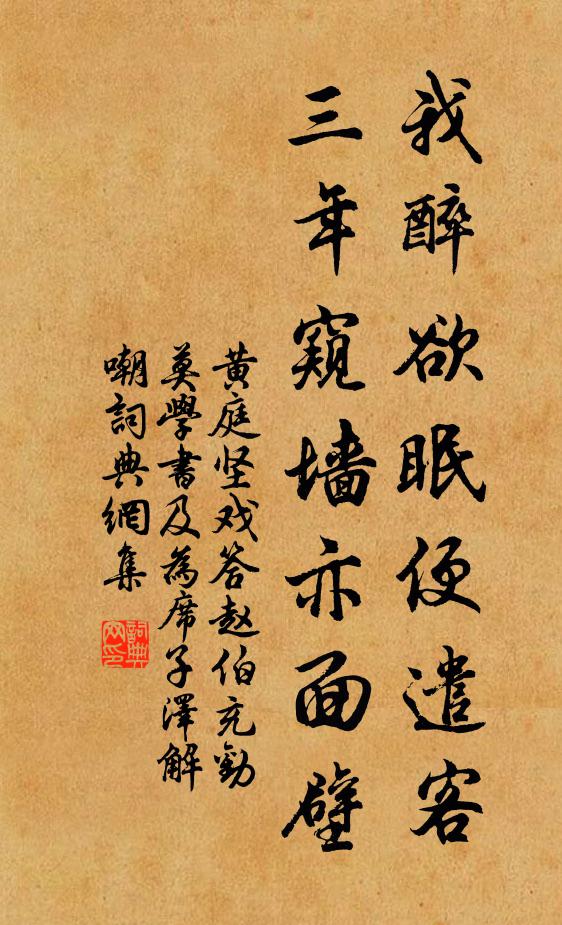 我醉欲眠便遣客
三年窥墙亦面壁
黄庭坚戏答赵伯充勸
莫學書及為席子澤解
嘲詞典網集
詞典
网印